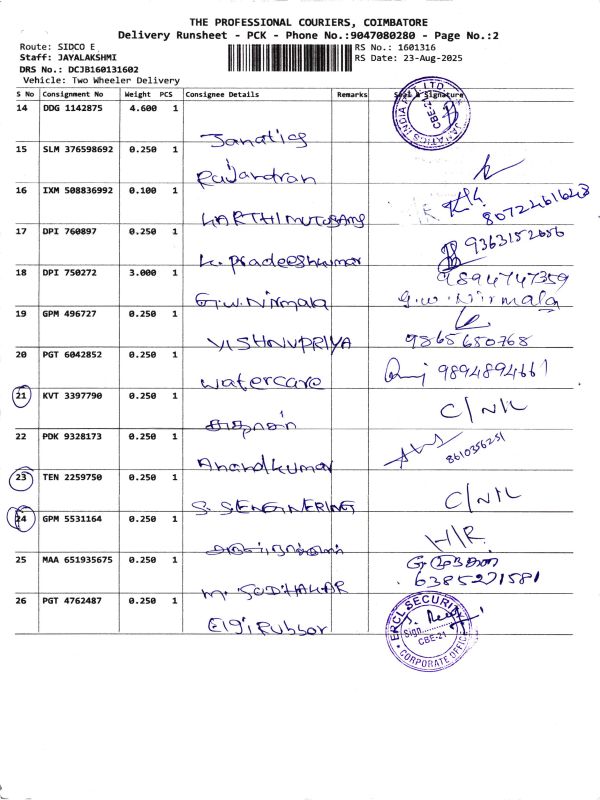 THE PROFESSIONAL COURIERS, COIMBATORE
Delivery Runsheet - PCK - Phone No.:9047080280 - Page No.:2
Route: SIDCO E
RS No.: 1601316
Staff: JAYALAKSHMI
RS Date: 23-Aug-2025
DRS No.: DCJB160131602
Vehicle: Two Wheeler Delivery
S No Consignment No Weight PCS Consignee Details Remarks Seal & Signature
14 DDG 1142875 4.600 1
Janatics
JANATICS INDIA LTD
CBE
15 SLM 376598692 0.250 1
Rajandran
16 IXM 508836992 0.100 1
KARTHIMUTUSAMY
8072261628
17 DPI 760897 0.250 1
K. Pradeeshkumar
9363152656
18 DPI 750272 3.000 1
G.W.Nirmala
9894747359
G.W. Nirmala
19 GPM 496727 0.250 1
VISHNUPRIYA
9865650768
20 PGT 6042852 0.250 1
Watercare
9894894661
21 KVT 3397790 0.250 1
C/NIL
22 PDK 9328173 0.250 1
Anandkumar
8610356251
23 TEN 2259750 0.250 1
S. SENGINERING
C/NIL
24 GPM 5531164 0.250 1
H/R
25 MAA 651935675 0.250 1
M. SUDHAKAR
6385271581
26 PGT 4762487 0.250 1
Elgi Rubbor
ERCL SECURITY
Sign
CBE-21
CORPORATE OFFICE